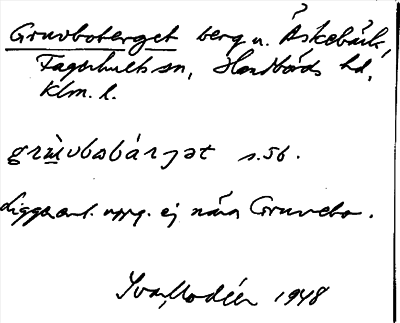 Gruvboberget berg u. Äskebäck,
Fagerhults sn, Handbörds hd,
Klm. l.
grùvbobárjət s.56.
Ligger enl. uppg. ej nära Gruvebo.
Ivar Modéer 1948